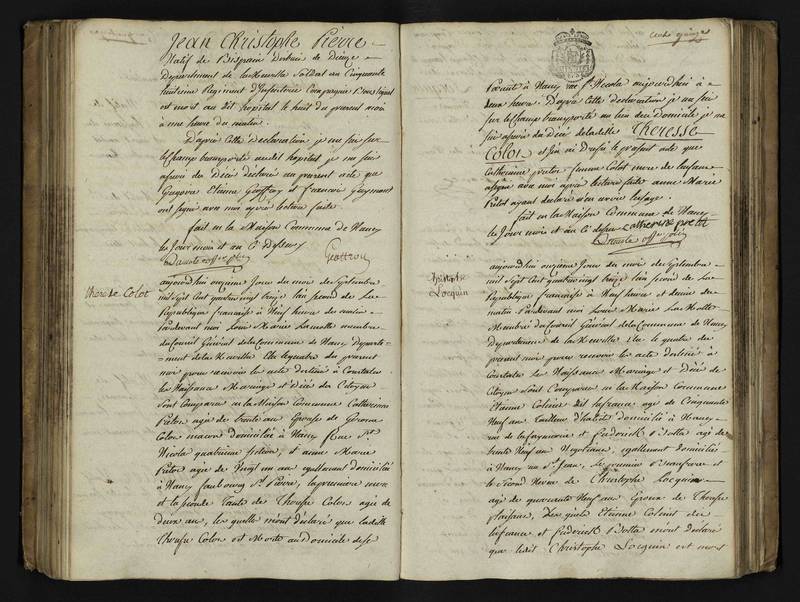 Jean Christophe Pierre
Natif de district de Dieuze
Departement de la Meurthe Soldat au Cinquante
huitieme Regiment d'Infanterie Compagnie
est mort au dit hopital le huit du present mois
à une heure du matin
D'après cette declaration je me suis sur
le champ transporté au dit hopital je me suis
assuré du Décé déclaré au present acte que
Etienne Geoffroy et francois Guymont
ont signé avec moi après lecture faite
fait en la Maison Commune de Nancy
les Jour mois et an Ci dessus
Geoffroy
Therese Colot
aujourdhui onzieme Jour du mois de Septembre
mil Sept Cent quatre vingt treize l'an second de La
Republique francaise à Neuf heure du matin
Pardevant moi Louis Marie Lamotte membre
du Conseil Général de la Commune de Nancy Departe-
ment de la Meurthe Elu le quatre du present
mois pour recevoir les actes destinés à Constater
les Naissance Mariage et Décés des Citoyens
Sont Comparus en la Maison Commune Catherinne
Pretot agée de trente ans Epouse de
Colot macon domiciliée à Nancy Rue St.
Nicolas quatrieme section, et anne Marie
Pretot agée de Vingt un ans egallement domiciliée
à Nancy faubourg St. Pierre, la premiere mere
et la seconde tante de Therese Colot agée de
deux ans, les quelles m'ont déclaré que ladite
Therese Colot est Morte au domicile de Ses
Parent à Nancy rue St Nicolas aujourdhui à
deux heure. D'après cette déclaration je me suis
sur le champ transporté au lieu du Domicile je me
suis assuré du Décé de ladite Theresse
Colot et j'en ai Dressé le présent acte que
Catherinne pretot femme Colot mere de
signé avec moi après lecture faite anne Marie
Pretot ayant declaré n'en avoir l'usage.
fait en la Maison Commune de Nancy
les Jour mois et an Ci dessus Catherine pretot
Christophe
Locquin
aujourdhui onzieme Jour du mois de Septembre
mil Sept Cent quatre vingt treize l'an second de La
Republique francaise à Neuf heure et demie du
matin Pardevant moi Louis Marie La Motte
Membre du Conseil Général de la Commune de Nancy
Departement de la Meurthe Elu le quatre du
présent mois pour recevoir les actes destinés à
Constater les Naissance Mariage et Décé des
Citoyens Sont Comparus en la Maison Commune
Etienne Colinet dit lafrance agé de Cinquante
Neuf ans tailleur d'habits domicilié à Nancy
rue de la fayencerie et frederick Botta agé de
trente Neuf ans Negotiant, egallement domicilié
à Nancy rue St Jean, le premier
et le Second Neveu de Christophe Locquin
agé de quarante Neuf ans Epoux de Therese
plaisance, Lesquels Etienne Colinet dit
lafrance et frederick Botta m'ont déclaré
que ledit Christophe Locquin est mort